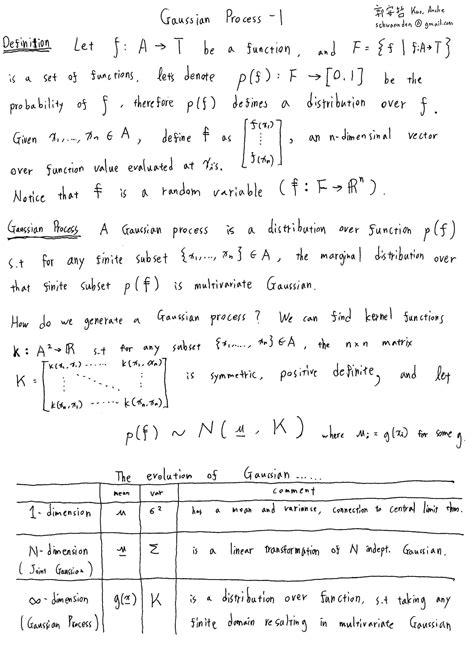 Gaussian Process -1
郭安哲 Kuo, Anche
schwannden @ gmail.com
Definition Let f: A → T be a function, and F = {f | f: A→T}
is a set of functions, lets denote p(f) : F → [0.1] be the
probability of f, therefore p(f) defines a distribution over f.
Given x₁,..., xₙ ∈ A, define f as [f(x₁) ⋮ f(xₙ)], an n-dimensinal vector
over function value evaluated at xᵢ's.
Notice that f is a random variable (f : F → ℝⁿ).
Gaussian Process A Gaussian process is a distribution over function p(f)
s.t for any finite subset {x₁,..., xₙ} ∈ A, the marginal distribution over
that finite subset p(f) is multivariate Gaussian.
How do we generate a Gaussian process? We can find kernel functions
k: A² → ℝ s.t for any subset {x₁,..., xₙ} ∈ A, the n×n matrix
K = [k(x₁,x₁) ...... k(x₁,xₙ) ⋮ k(xₙ,x₁) ...... k(xₙ,xₙ)] is symmetric, positive definite, and let
p(f) ~ N(μ, K) where μᵢ = g(xᵢ) for some g.
The evolution of Gaussian ......
mean var comment
1-dimension μ σ² has a mean and variance, connection to central limit thm.
N-dimension μ Σ is a linear transformation of N indept. Gaussian.
(Joint Gaussian)
∞-dimension g(x) K is a distribution over function, s.t taking any
(Gaussian Process) finite domain resulting in multivariate Gaussian